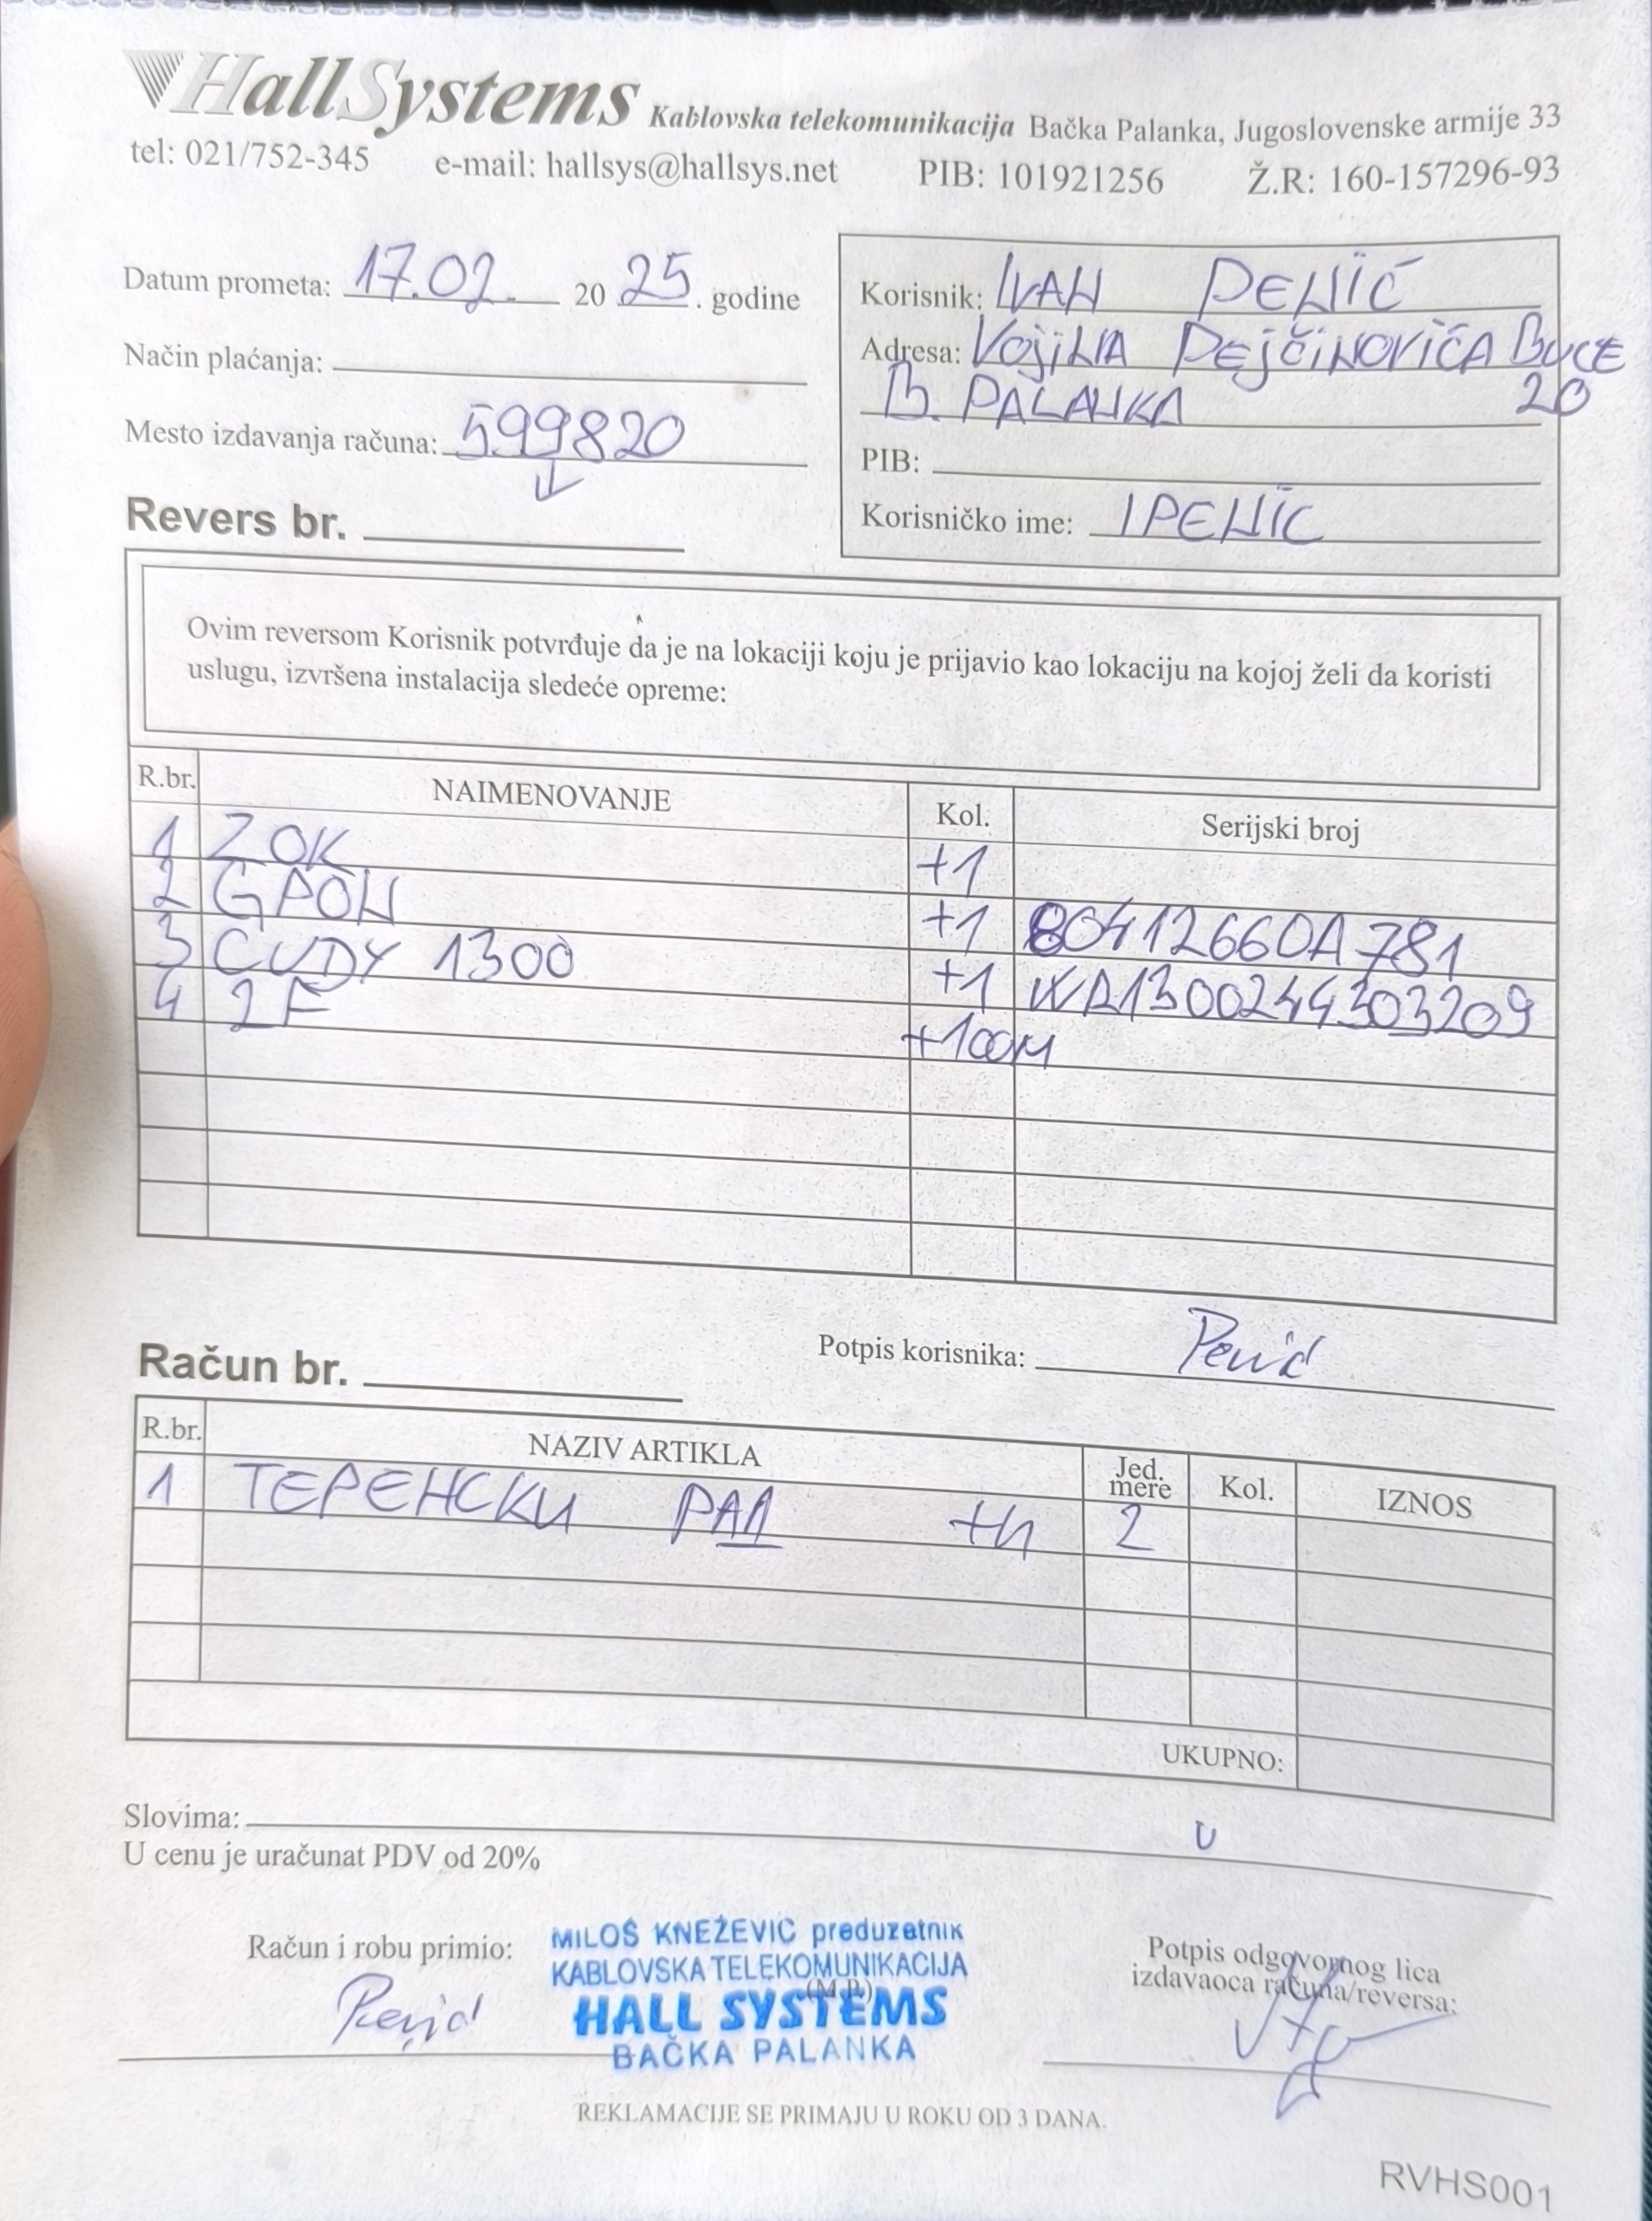 HallSystems Kablovska telekomunikacija Bačka Palanka, Jugoslovenske armije 33
tel: 021/752-345 e-mail: hallsys@hallsys.net PIB: 101921256 Ž.R: 160-157296-93
Datum prometa: 17.02. 20 25. godine
Način plaćanja:
Mesto izdavanja računa: 599820
Revers br.
Korisnik: IVAN PENIĆ
Adresa: VOJINA PEJČINOVIĆA BUCE
B. PALANKA 20
PIB:
Korisničko ime: IPENIC
Ovim reversom Korisnik potvrđuje da je na lokaciji koju je prijavio kao lokaciju na kojoj želi da koristi
uslugu, izvršena instalacija sledeće opreme:
R.br. NAIMENOVANJE Kol. Serijski broj
1 ZOK +1
2 GPON +1 80412660A781
3 CUDY 1300 +1 WR1300244303209
4 2F +100M
Potpis korisnika: Penić
Račun br.
R.br. NAZIV ARTIKLA Jed. mere Kol. IZNOS
1 ТЕРЕНСКИ РАД +h 2
UKUPNO:
Slovima:
U cenu je uračunat PDV od 20%
Račun i robu primio:
Penić
MILOŠ KNEŽEVIĆ preduzetnik
KABLOVSKA TELEKOMUNIKACIJA
(M.P.)
HALL SYSTEMS
BAČKA PALANKA
Potpis odgovornog lica
izdavaoca računa/reversa:
REKLAMACIJE SE PRIMAJU U ROKU OD 3 DANA.
RVHS001